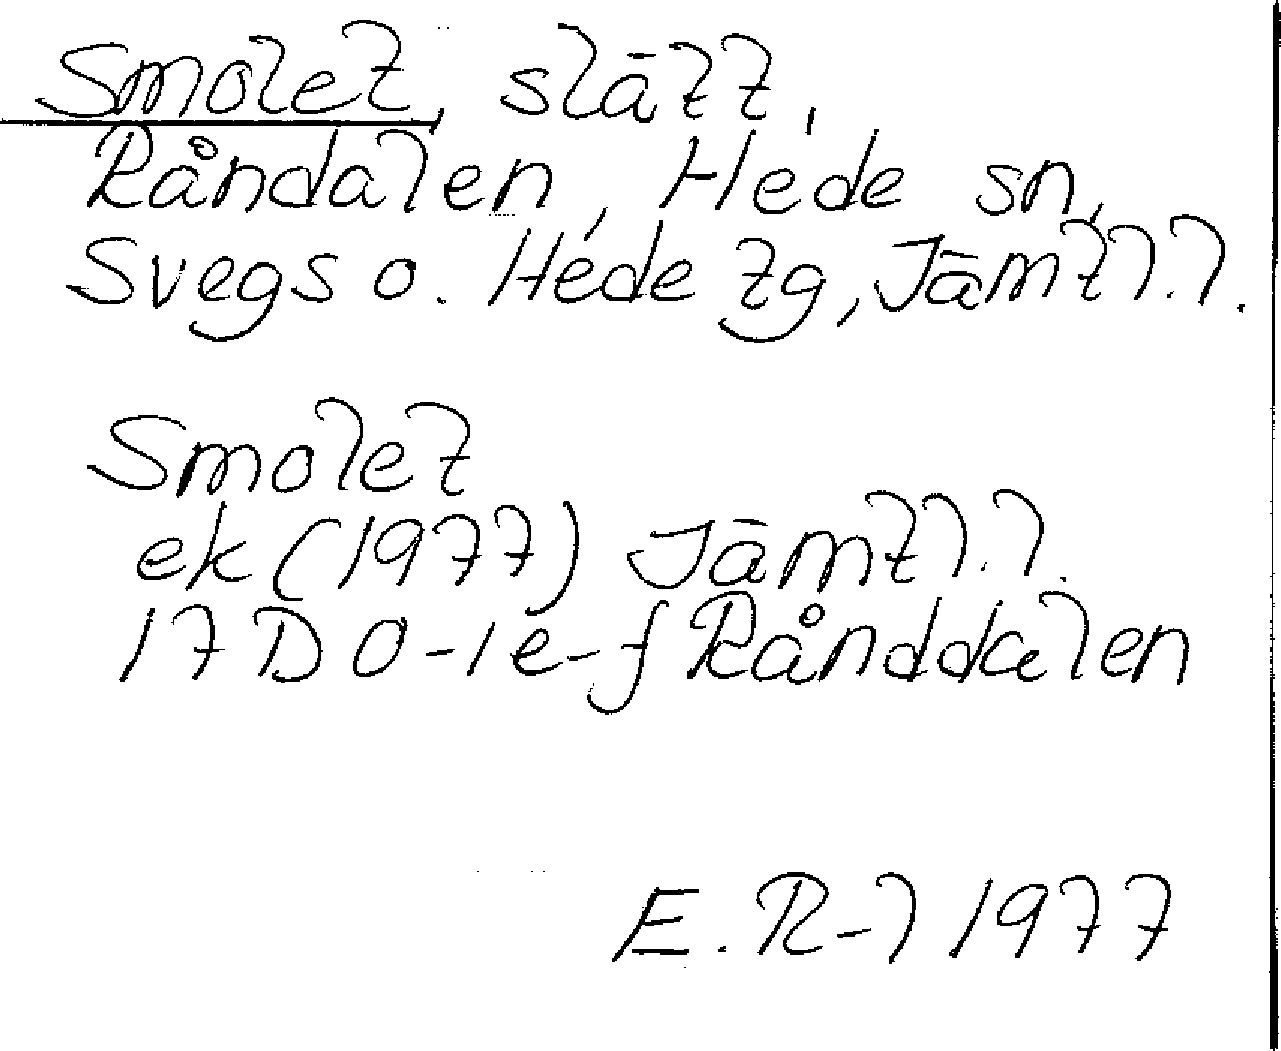 Smolet, slätt,
Råndalen, Hede sn,
Svegs o. Hede tg, Jämtl. l.
Smolet
ek (1977) Jämtl. l.
17D 0-1 e-f Rånddalen
E. R-l 1977